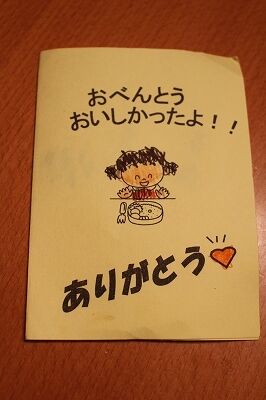 おべんとう
おいしかったよ！！
ありがとう